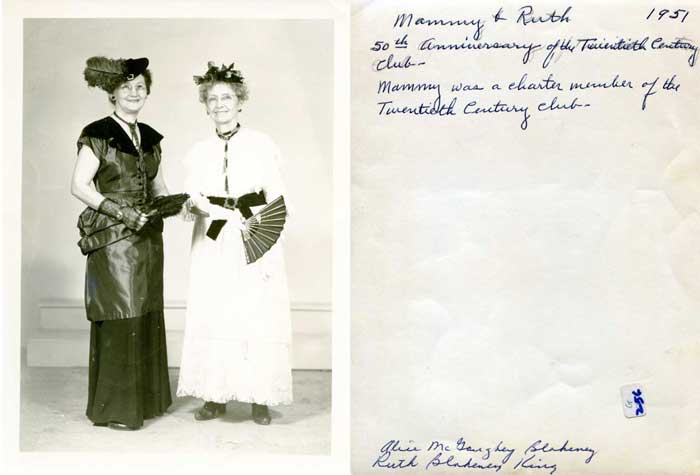 Mammy & Ruth 1951
50th Anniversary of the Twentieth Century
Club-
Mammy was a charter member of the
Twentieth Century Club-
256
Alice McGaughey Blakeney
Ruth Blakeney King